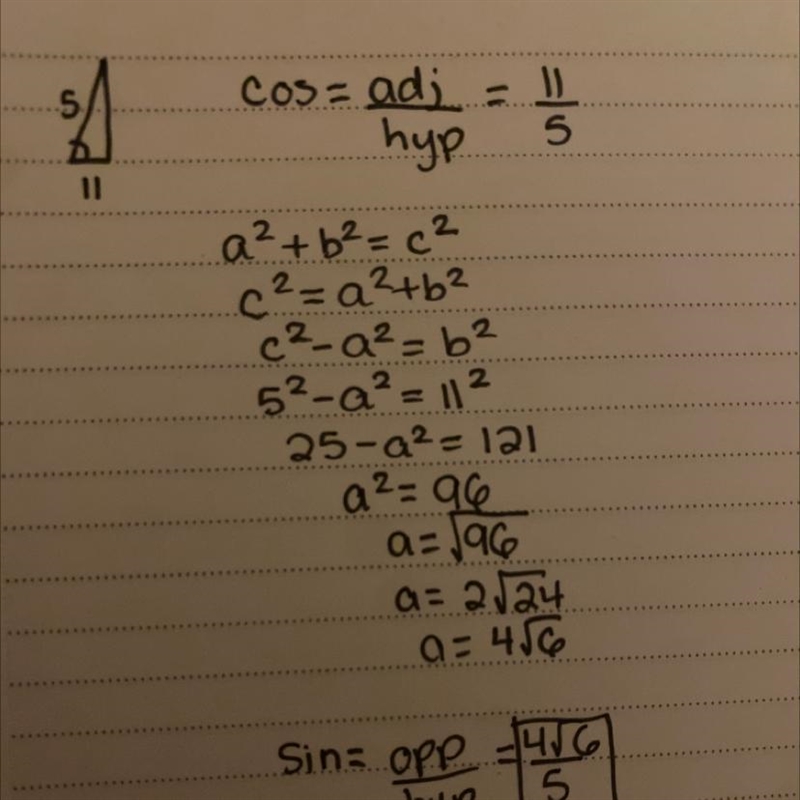 5
11
cos = adj/hyp = 11/5
a² + b² = c²
c² = a² + b²
c² - a² = b²
5² - a² = 11²
25 - a² = 121
a² = 96
a = √96
a = 2√24
a = 4√6
Sin = opp/hyp = 4√6/5